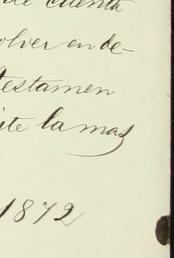 de cuenta
olver en de-
testamen
ite la mas
1872